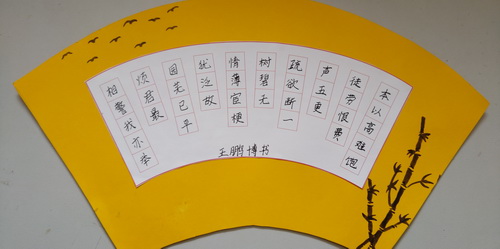 本以高难饱
徒劳恨费
声五更
疏欲断一
树碧无
情薄宦梗
犹泛故
园芜已平
烦君最
相警我亦举
王鹏博书